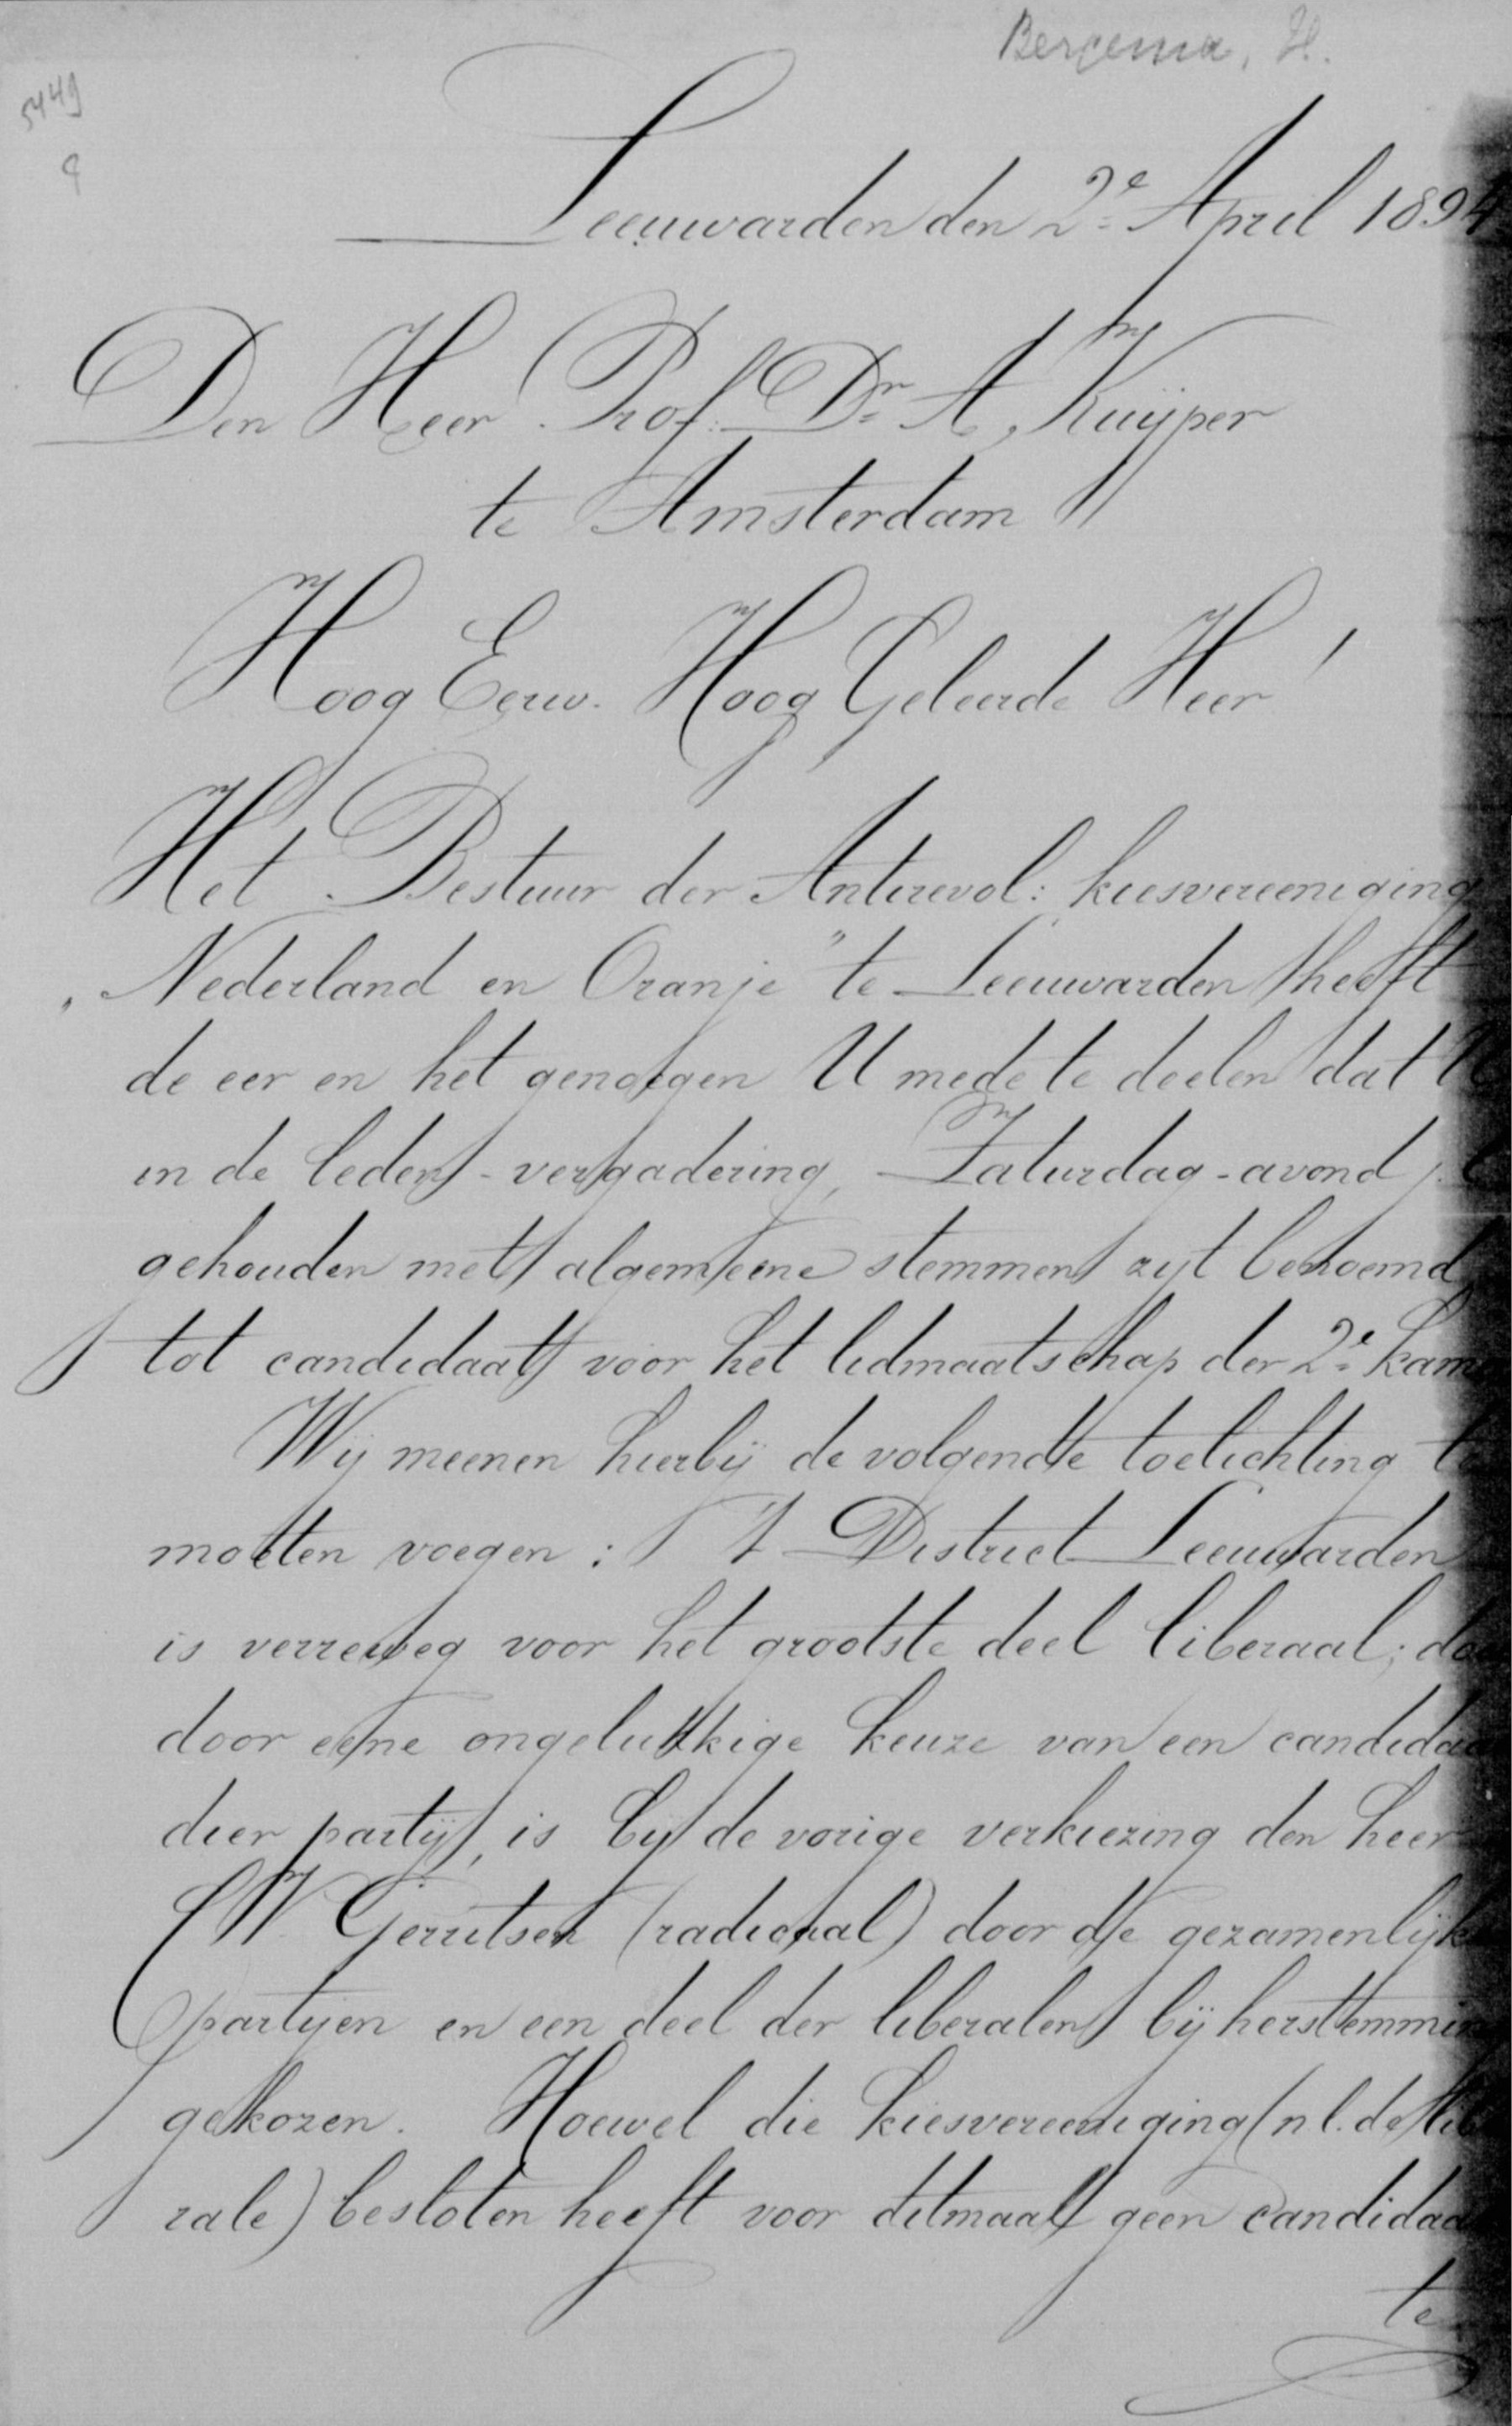 Bergema, H.
5449
9
Leeuwarden den 2e April 1894
Den Heer Prof. Dr A, Kuijper
te Amsterdam
Hoog Eerw. Hoog Geleerde Heer!
Het Bestuur der Antirevol: kiesvereeniging
„Nederland en Oranje" te Leeuwarden heeft
de eer en het genoegen U mede te deelen dat U
in de leden-vergadering, Zaturdag-avond j.l.
gehouden met algemeene stemmen zijt benoemd
tot candidaat voor het lidmaatschap der 2e Kam
Wij meenen hierbij de volgende toelichting te
moeten voegen: 't District Leeuwarden
is verreweg voor het grootste deel liberaal; do
door eene ongelukkige keuze van een candida
dier partij, is bij de vorige verkiezing den heer
CW Gerritsen (radicaal) door de gezamenlijk
partijen en een deel der liberalen bij herstemmin
gekozen. Hoewel die kiesvereeniging (nl. de libe
rale) besloten heeft voor ditmaal geen candidaa
te